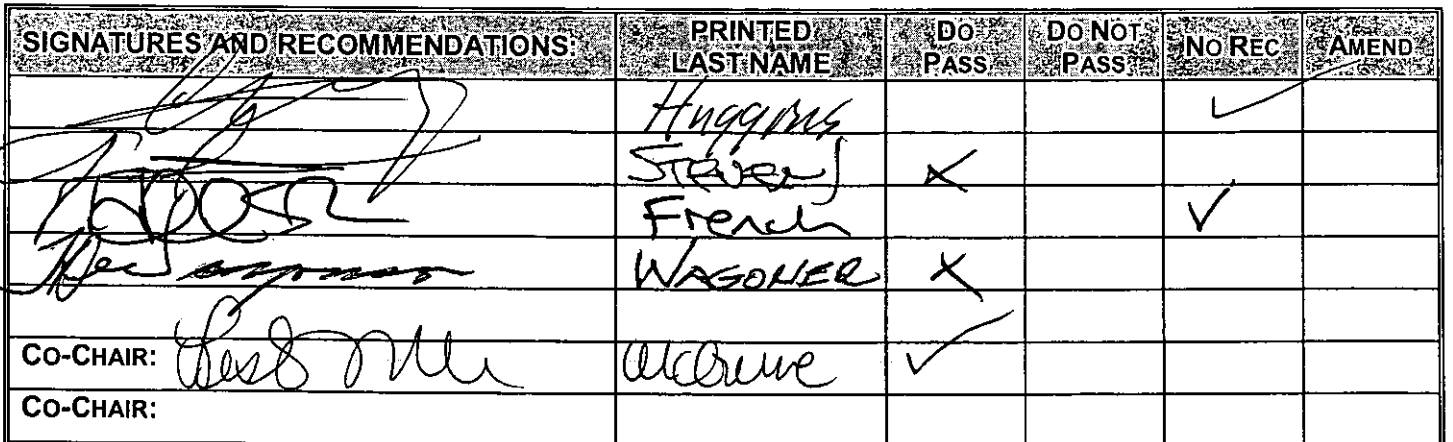 SIGNATURES AND RECOMMENDATIONS: PRINTED LAST NAME DO PASS DO NOT PASS NO REC AMEND
Huggins ✓
STEVENS X
French ✓
WAGONER X
CO-CHAIR: McGuire ✓
CO-CHAIR: